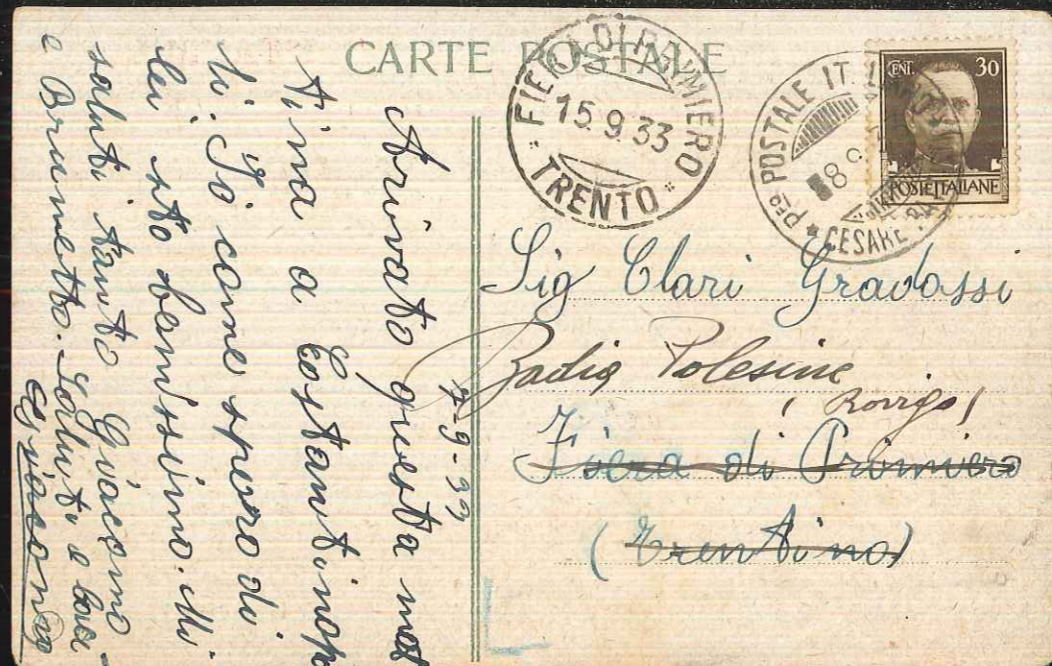 CARTE POSTALE
FIERA DI PRIMIERO
15.9.33
TRENTO
PFO POSTALE IT
8 9
CESARE
CENT. 30
POSTE ITALIANE
7-9-33
Arrivato questa mat
tina a Costantinopo
li. Io come spero di
lei sto benissimo. Mi
saluti tanto Giacomo
e Brunetto. Saluti e baci
Sig Clari Gravassi
Badia Polesine
(Rovigo)
Fiera di Primiero
(Trentino)